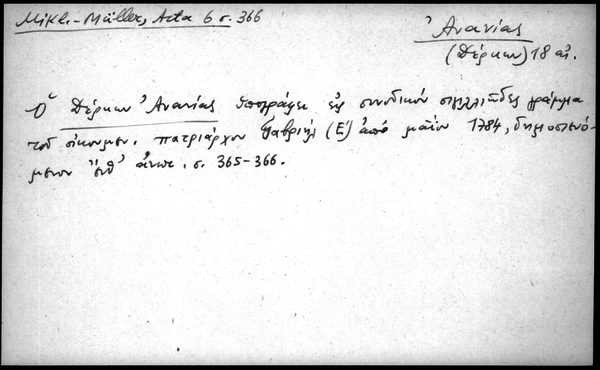 Mikl.-Müller, Acta 6 σ. 366
Ἀνανίας
(Δέρκων) 18 αἰ.
Ὁ Δέρκων Ἀνανίας ὑπογράφει εἰς συνοδικόν σιγιλλιῶδες γράμμα
τοῦ οἰκουμεν. πατριάρχου Γαβριήλ (Ε΄) ἀπό μαΐου 1784, δημοσιευό-
μενον ἔνθ' ἀνωτ. σ. 365-366.